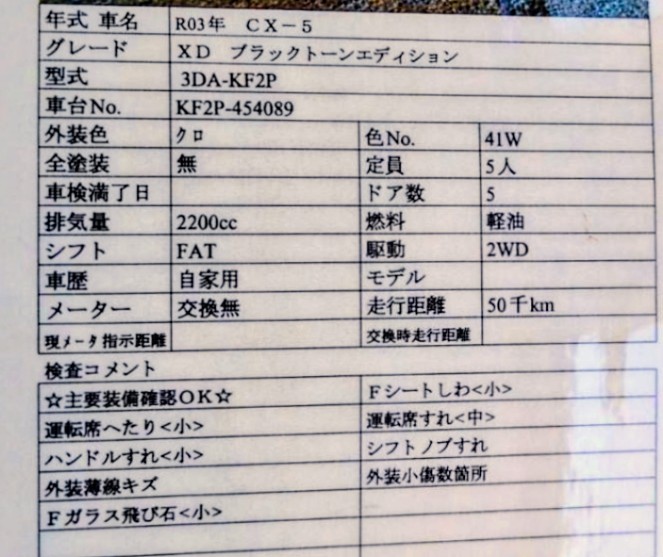 年式 車名 R03年 CX－5
グレード XD ブラックトーンエディション
型式 3DA-KF2P
車台No. KF2P-454089
外装色 クロ 色No. 41W
全塗装 無 定員 5人
車検満了日 ドア数 5
排気量 2200cc 燃料 軽油
シフト FAT 駆動 2WD
車歴 自家用 モデル
メーター 交換無 走行距離 50千km
現メータ指示距離 交換時走行距離
検査コメント
☆主要装備確認OK☆ Fシートしわ<小>
運転席へたり<小> 運転席すれ<中>
ハンドルすれ<小> シフトノブすれ
外装薄線キズ 外装小傷数箇所
Fガラス飛び石<小>